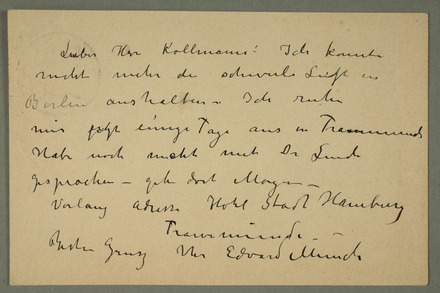 Lieber Herr Kollmann! Ich konnte
nicht mehr die schwule Luft in
Berlin aushalten – Ich ruhe
mir jetzt einige Tage aus in Travemünde
Habe noch nicht mit Dr Linde
gesprochen – gehe dort Morgen –
Vorläug adresse Hotel Stadt Hamburg
Travemünde –
Besten Gruss Ihr Edvard Munch